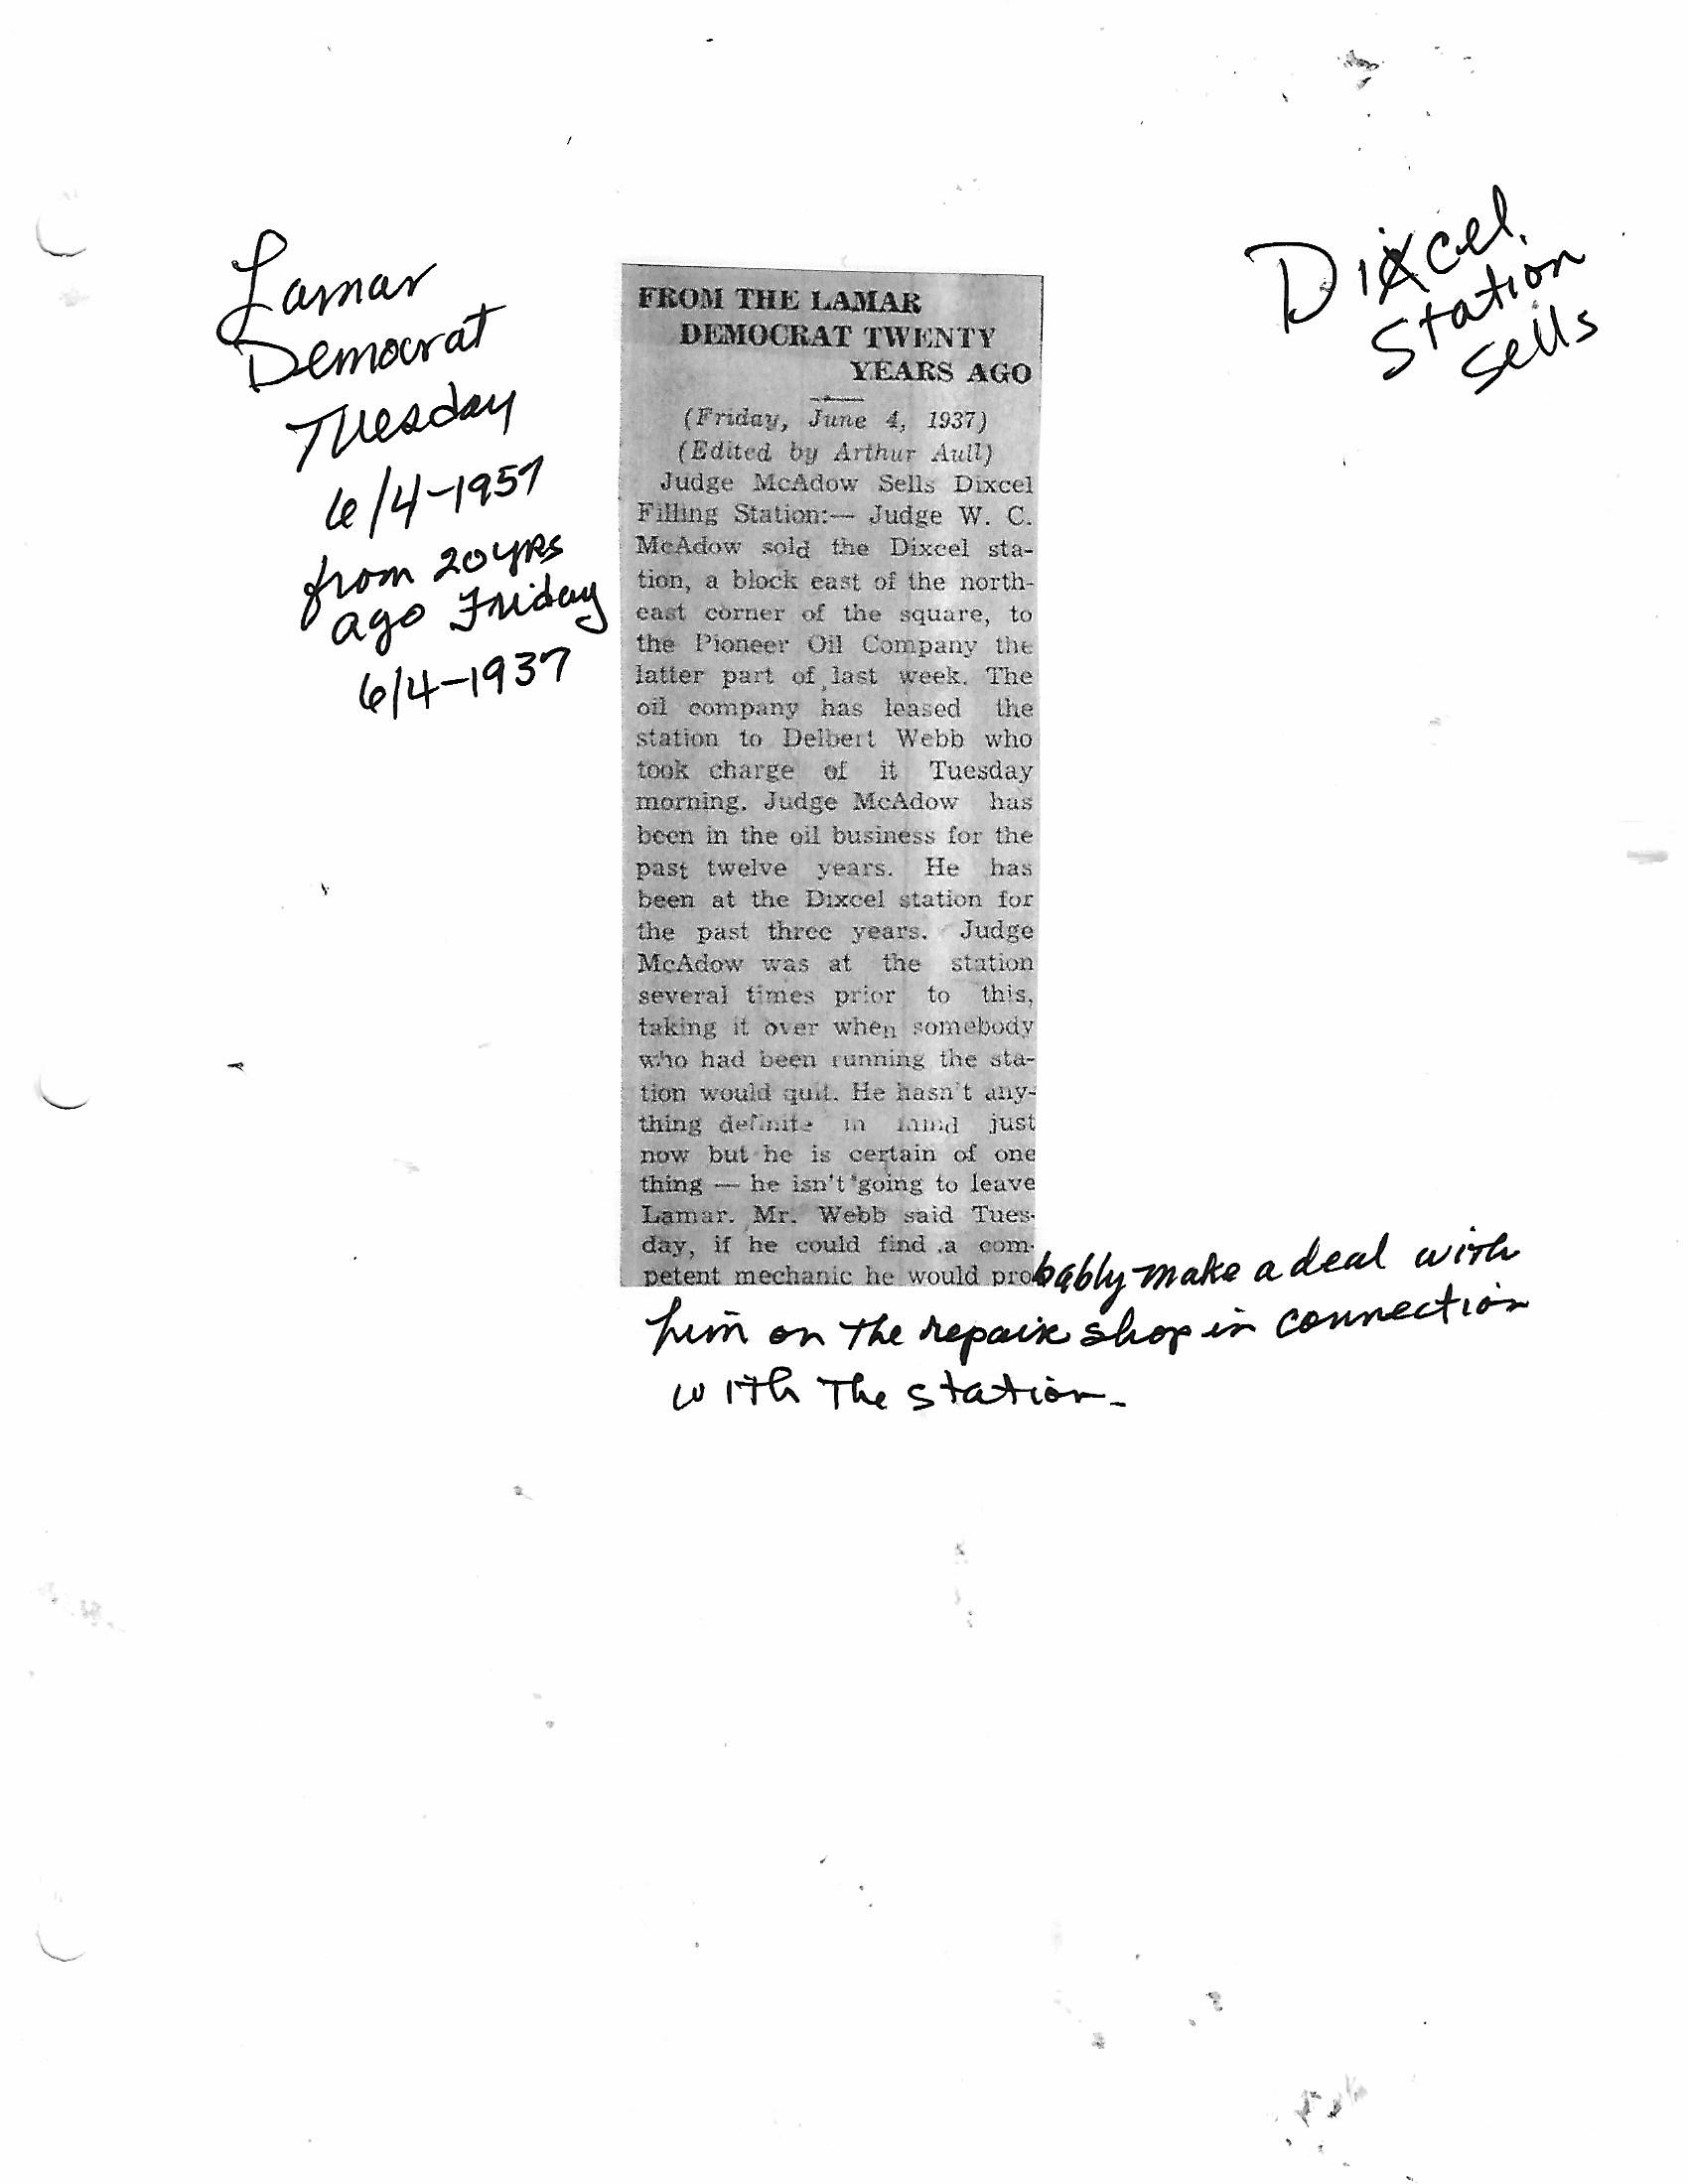 Lamar
Democrat
Tuesday
6/4-1957
from 20 yrs
ago Friday
6/4-1937
Dixcel
Station
Sells
FROM THE LAMAR
DEMOCRAT TWENTY
YEARS AGO
(Friday, June 4, 1937)
(Edited by Arthur Aull)
Judge McAdow Sells Dixcel
Filling Station:— Judge W. C.
McAdow sold the Dixcel sta-
tion, a block east of the north-
east corner of the square, to
the Pioneer Oil Company the
latter part of last week. The
oil company has leased the
station to Delbert Webb who
took charge of it Tuesday
morning. Judge McAdow has
been in the oil business for the
past twelve years. He has
been at the Dixcel station for
the past three years. Judge
McAdow was at the station
several times prior to this,
taking it over when somebody
who had been running the sta-
tion would quit. He hasn't any-
thing definite in mind just
now but he is certain of one
thing — he isn't going to leave
Lamar. Mr. Webb said Tues-
day, if he could find a com-
petent mechanic he would probably make a deal with
him on the repair shop in connection
with the station.